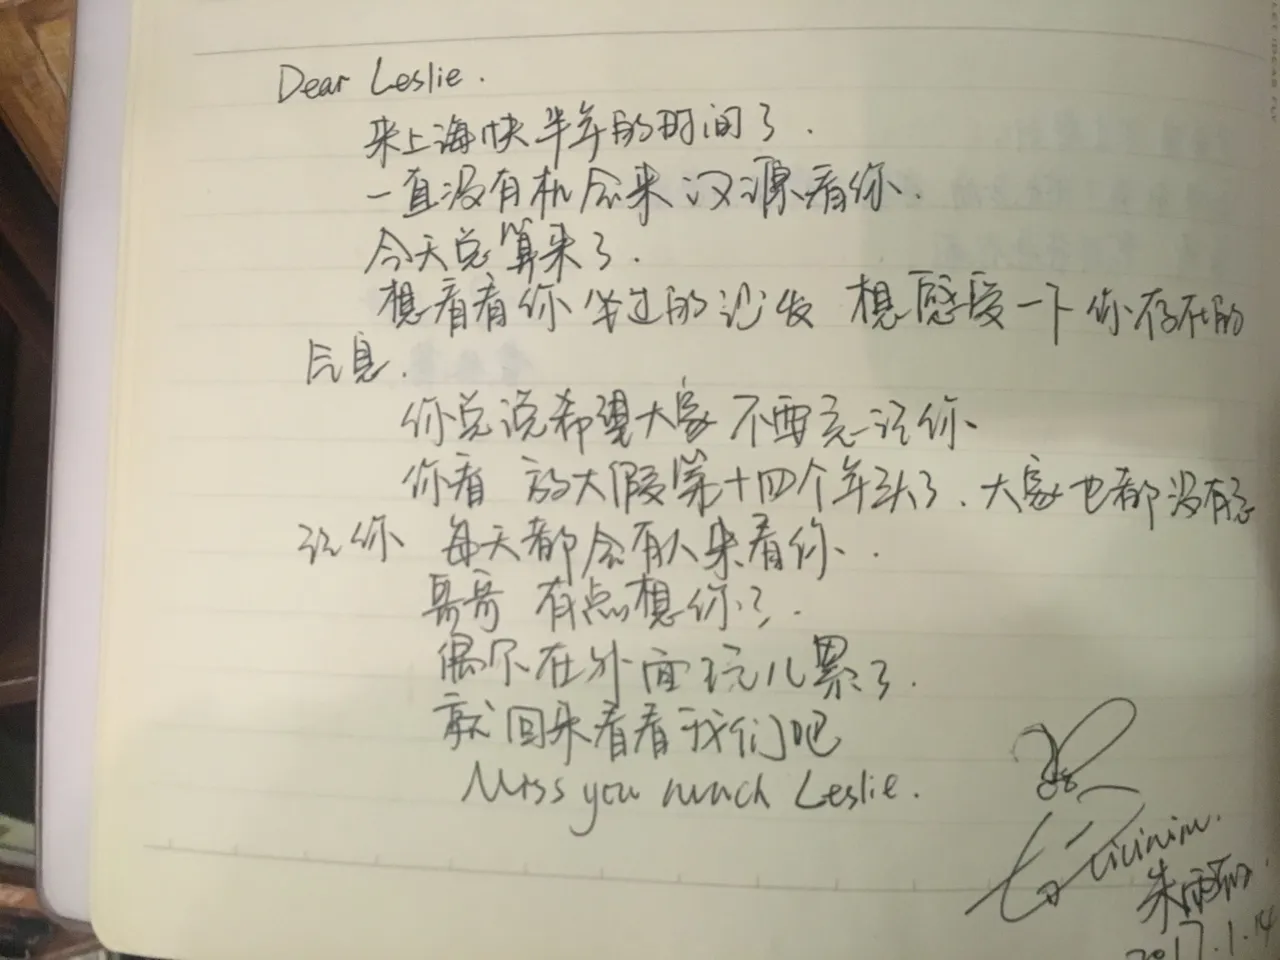 Dear Leslie.
来上海快半年的时间了.
一直没有机会来汉源看你.
今天总算来了.
想看看你坐过的沙发 想感受一下你存在的
气息.
你总说希望大家不要忘记你
你看 放大假第十四个年头了. 大家也都没有忘
记你 每天都会有人来看你.
哥哥 有点想你了.
偶尔在外面玩儿累了.
就回来看看我们吧
Miss you much Leslie.
朱雨
2017.1.14